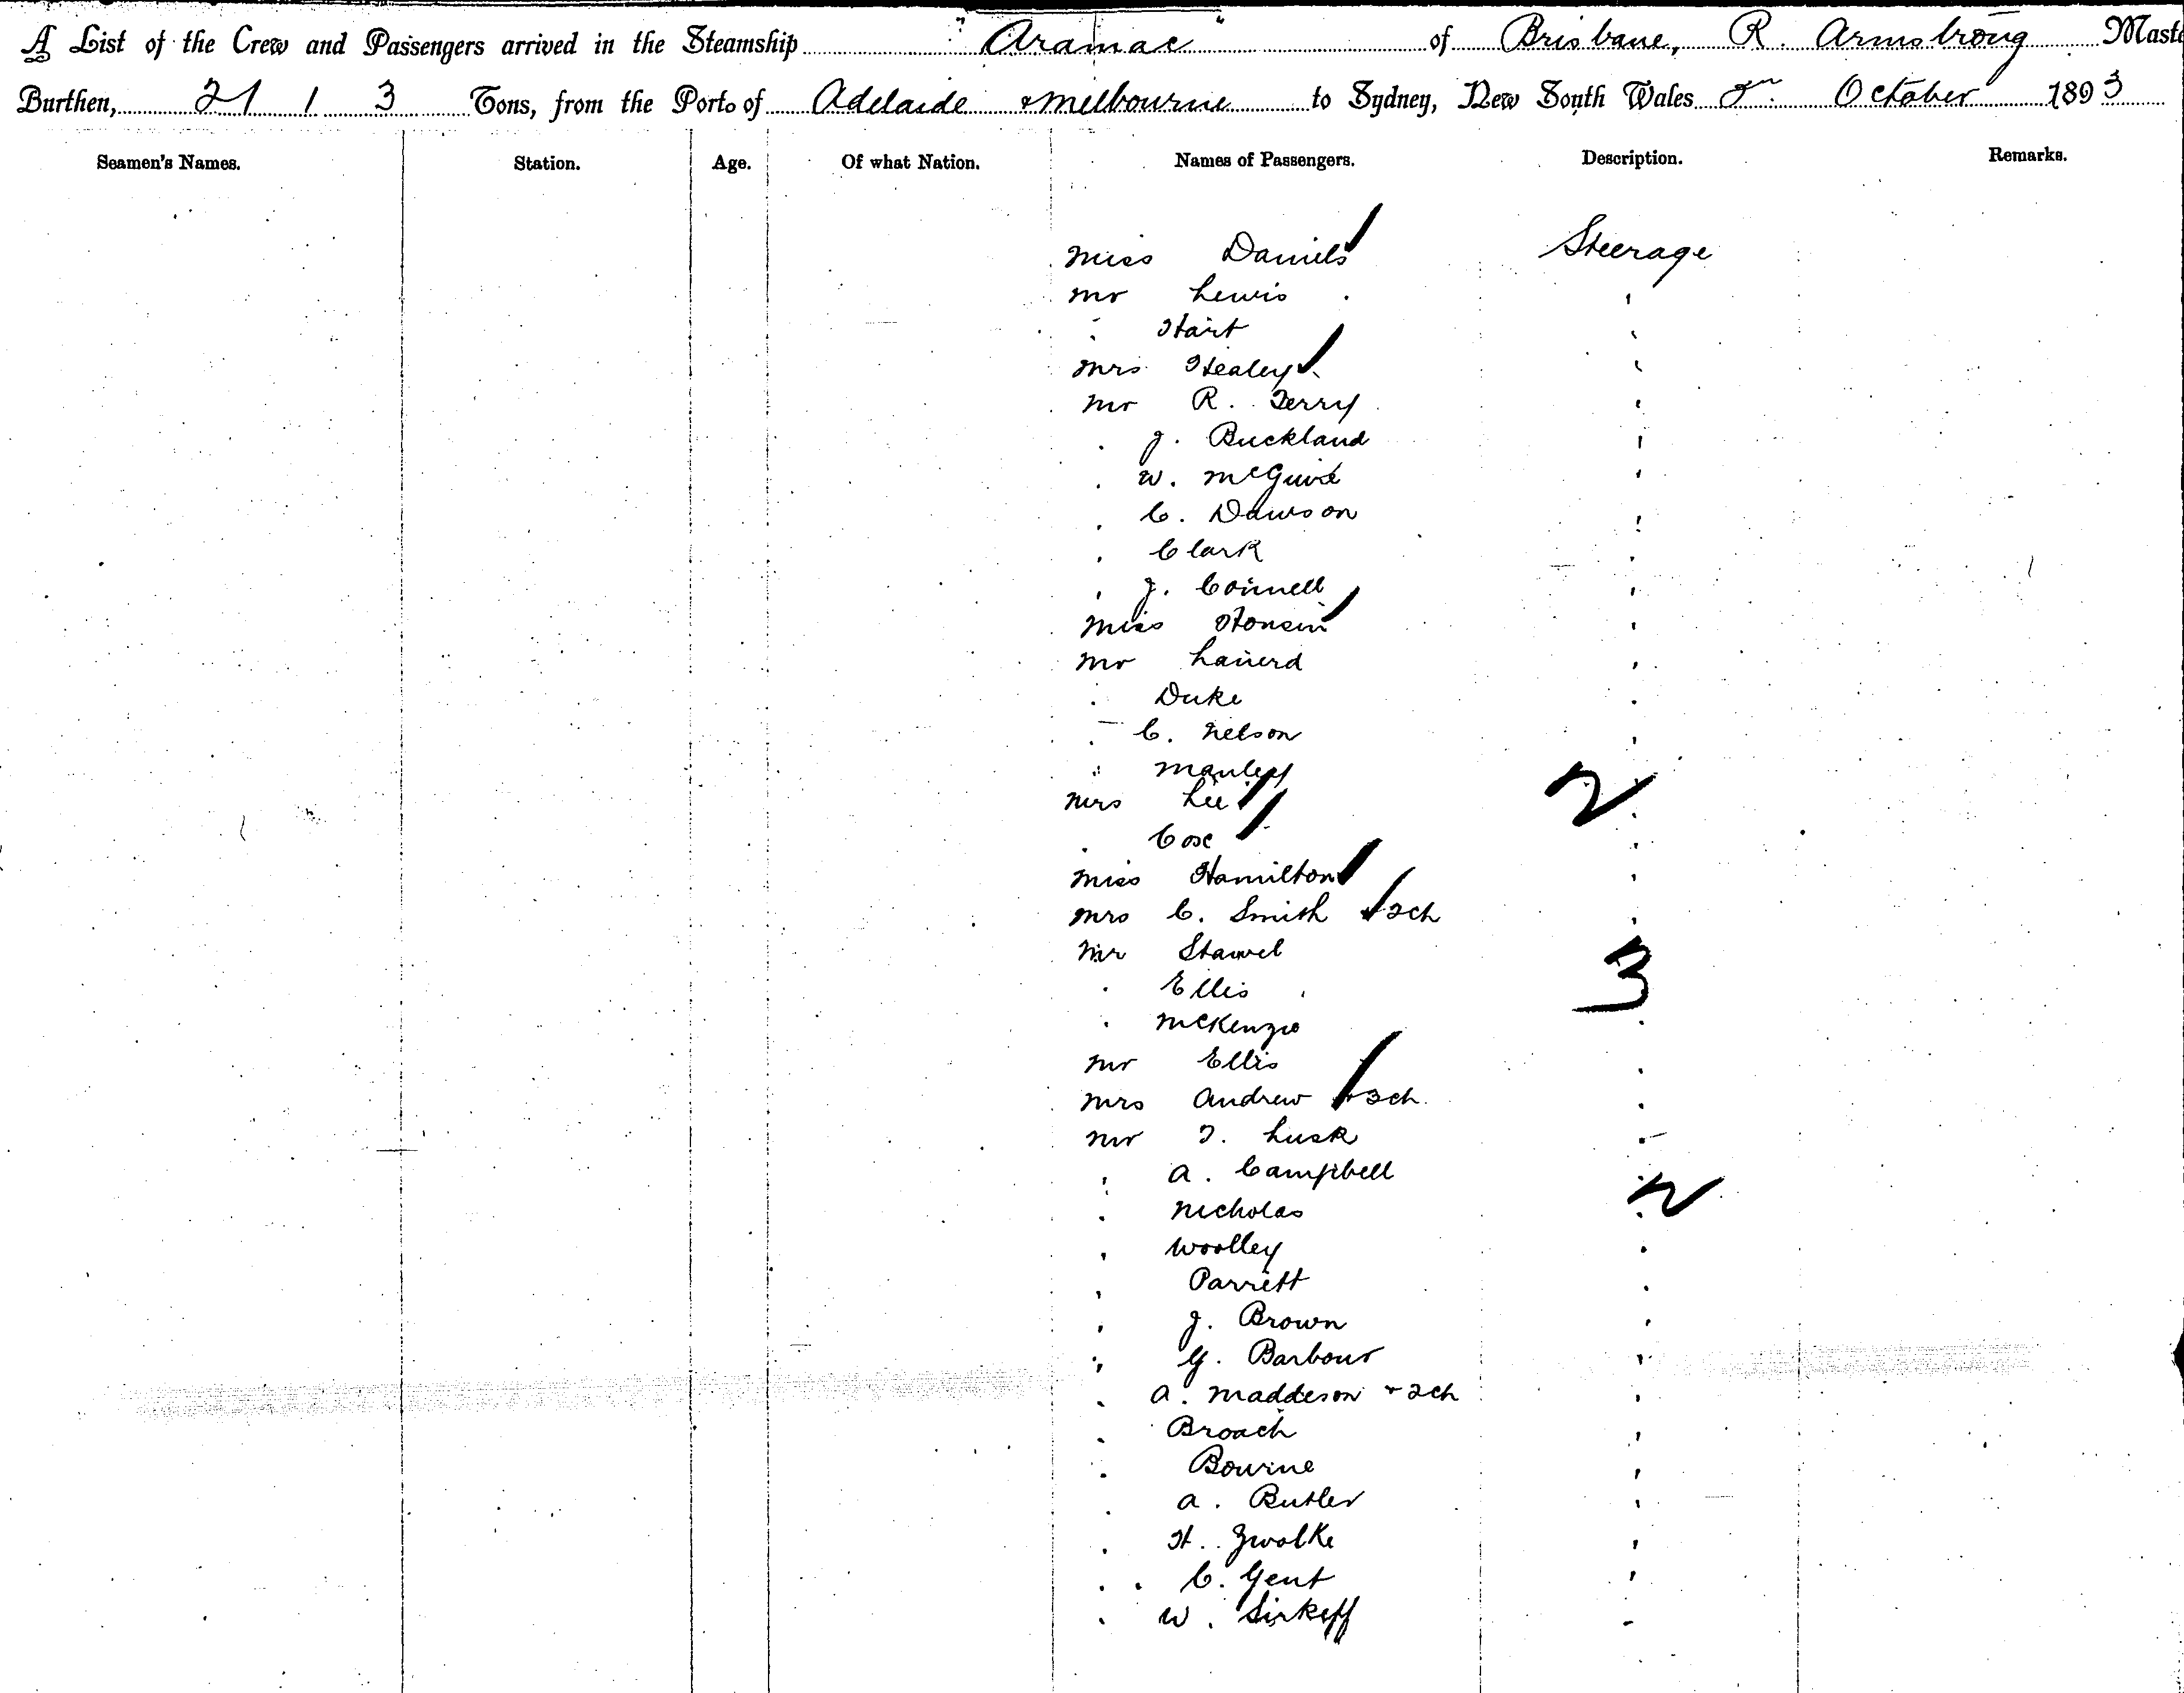 A List of the Crew and Passengers arrived in the Steamship "Aramac" of Brisbane, R. Armstrong Maste
Burthen, 2113 Tons, from the Port of Adelaide & Melbourne to Sydney, New South Wales October 1893
Seamen's Names. Station. Age. Of what Nation. Names of Passengers. Description. Remarks.
Miss Daniels Steerage
Mr Lewis
" Hart
Mrs Healey
Mr R. Terry
" J. Buckland
" W. McGuire
" C. Dawson
" Clark
" J. Connell
Miss
Mr
" Duke
" C. Nelson
" Manley
Mrs Lee 2
" Cox
Miss Hamilton
Mrs C. Smith & 2 ch
Mr Stawel
" Ellis 3
" McKenzie
Mr Ellis
Mrs Andrew & 3 ch
Mr T. Lusk
" A. Campbell
" Nicholas 2
" Woolley
" Parrett
" J. Brown
" G. Barbour
" A. Maddeson & 2 ch
" Broach
" Bourne
" A. Butler
" H. Zwolke
" C. Gent
" W.